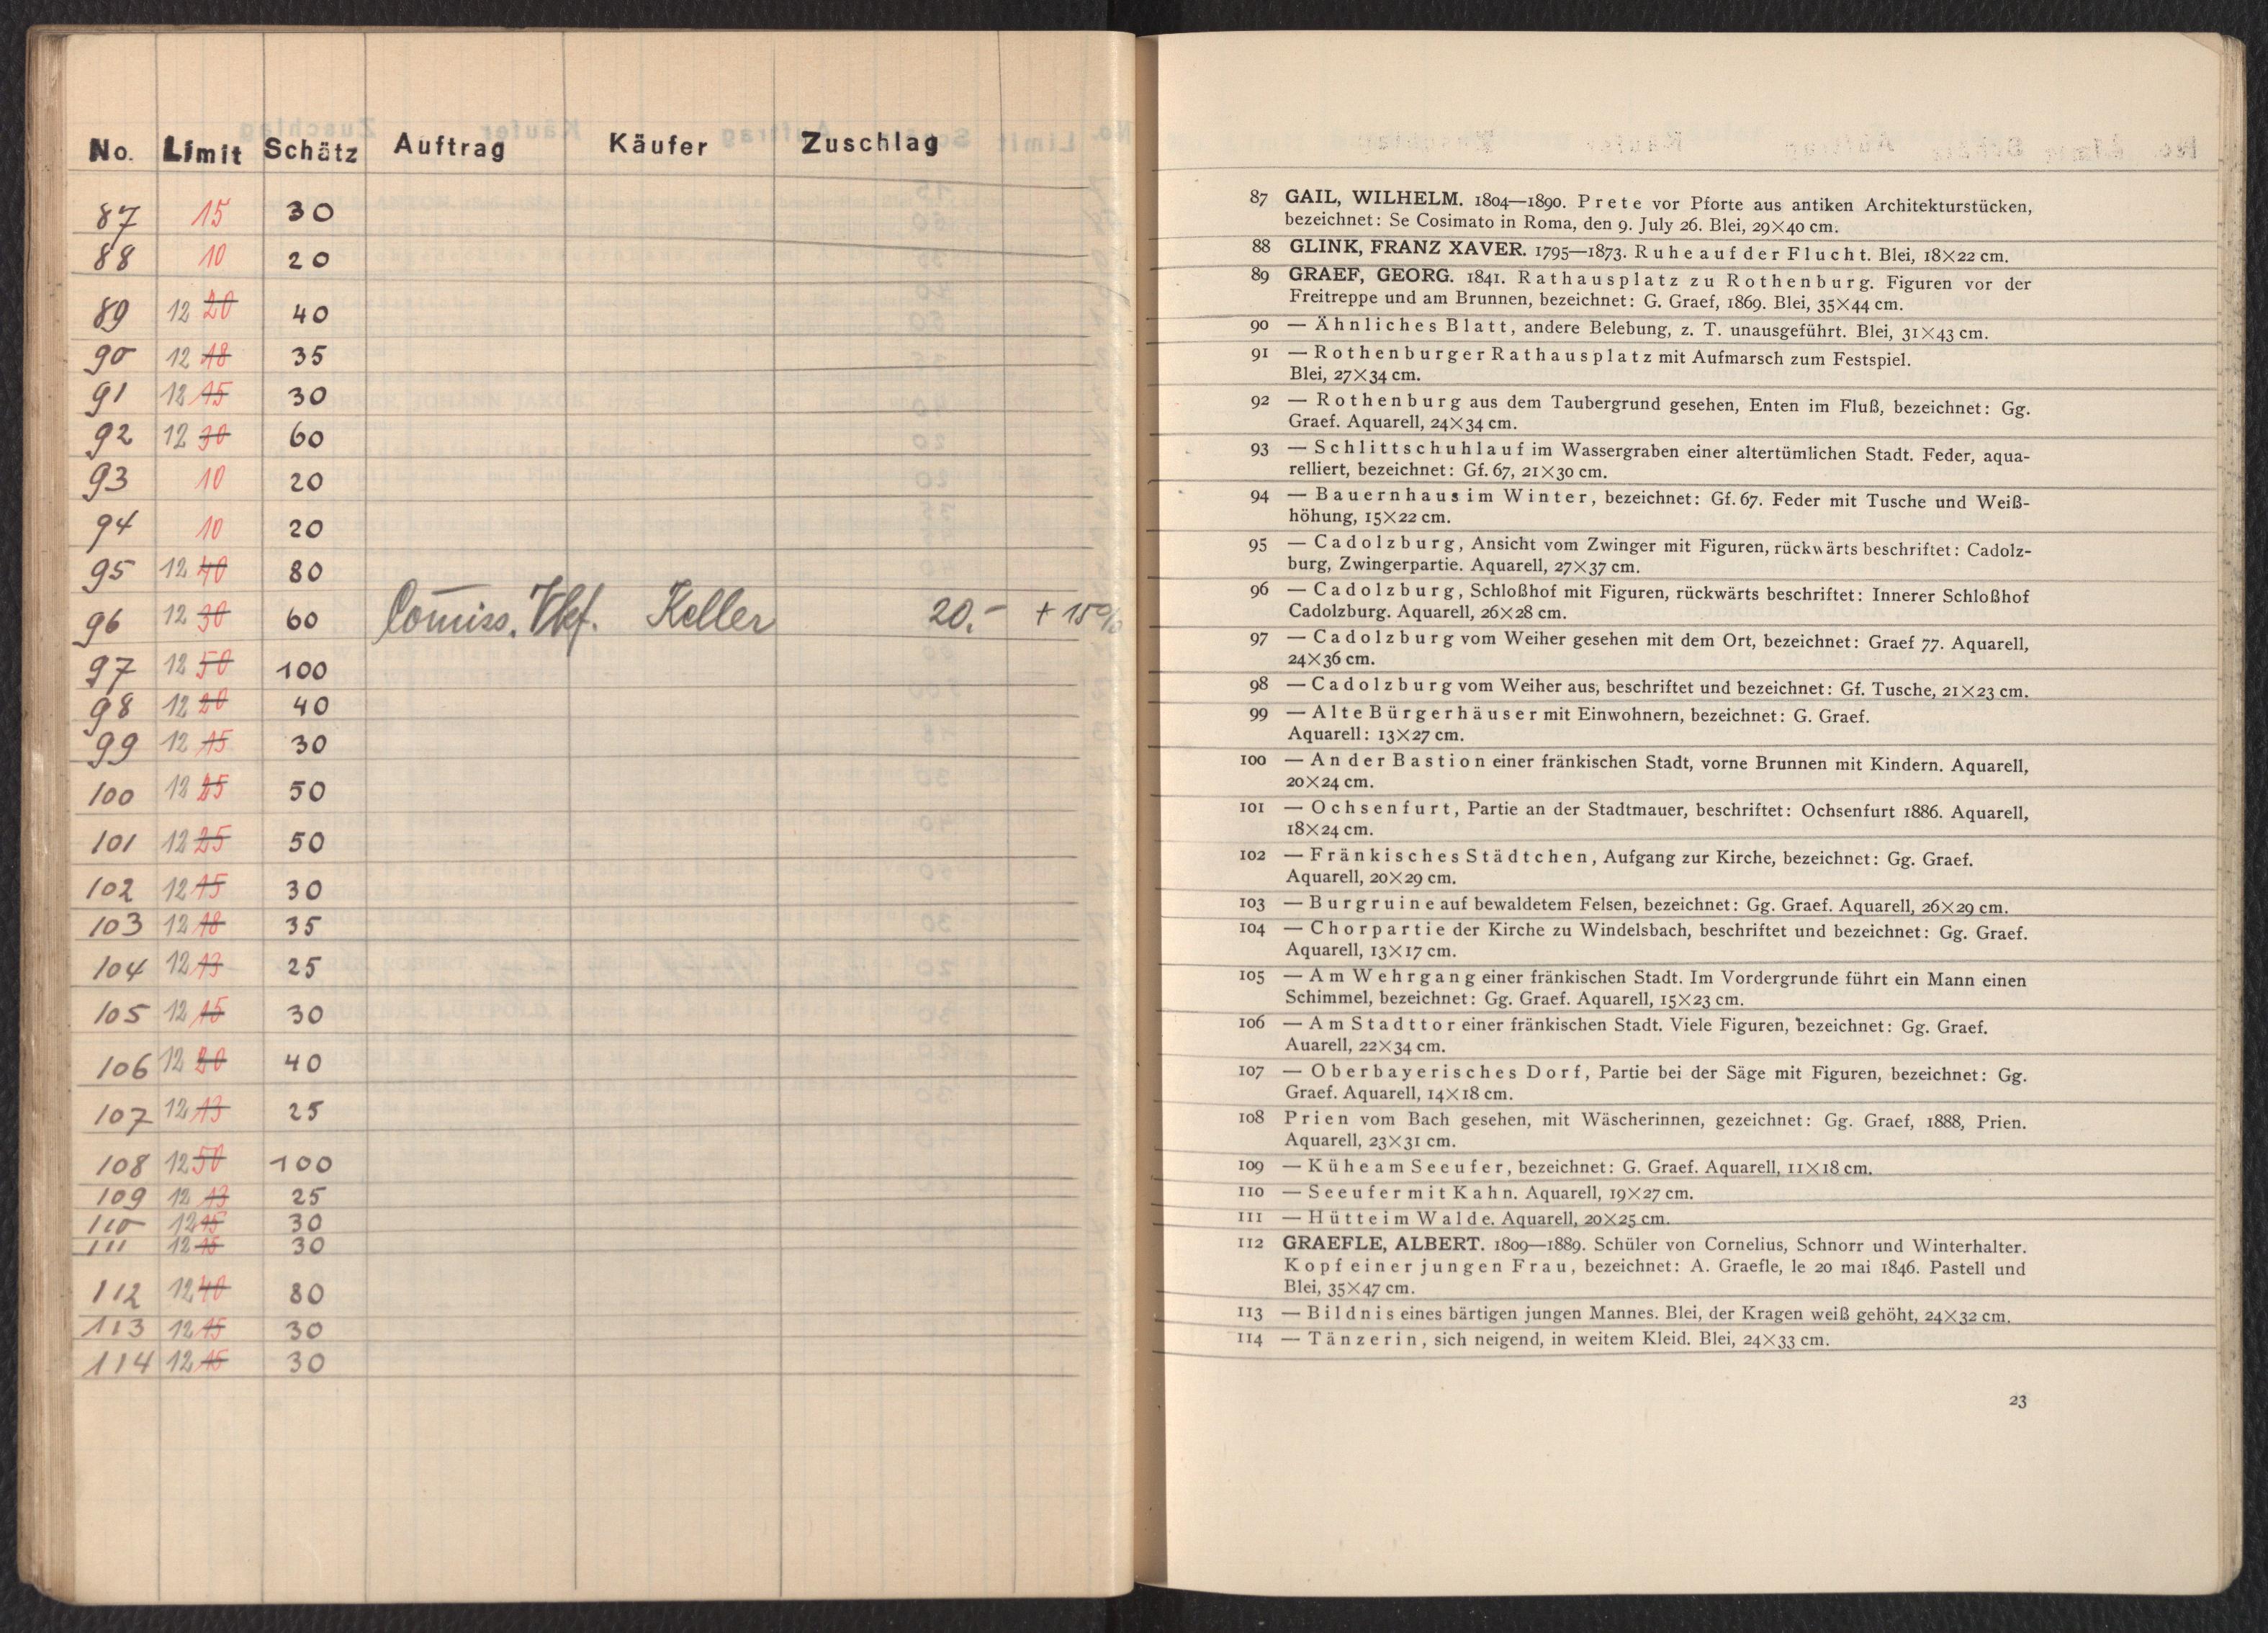 No. Limit Schätz Auftrag Käufer Zuschlag
87 15 30
88 10 20
89 12 20 40
90 12 18 35
91 12 15 30
92 12 30 60
93 10 20
94 10 20
95 12 40 80
96 12 30 60 Comiss. Vkf. Keller 20.- + 15%
97 12 50 100
98 12 20 40
99 12 15 30
100 12 25 50
101 12 25 50
102 12 15 30
103 12 18 35
104 12 13 25
105 12 15 30
106 12 20 40
107 12 13 25
108 12 50 100
109 12 13 25
110 12 15 30
111 12 15 30
112 12 40 80
113 12 15 30
114 12 15 30
87 GAIL, WILHELM. 1804—1890. Prete vor Pforte aus antiken Architekturstücken,
bezeichnet: Se Cosimato in Roma, den 9. July 26. Blei, 29×40 cm.
88 GLINK, FRANZ XAVER. 1795—1873. Ruhe auf der Flucht. Blei, 18×22 cm.
89 GRAEF, GEORG. 1841. Rathausplatz zu Rothenburg. Figuren vor der
Freitreppe und am Brunnen, bezeichnet: G. Graef, 1869. Blei, 35×44 cm.
90 — Ähnliches Blatt, andere Belebung, z. T. unausgeführt. Blei, 31×43 cm.
91 — Rothenburger Rathausplatz mit Aufmarsch zum Festspiel.
Blei, 27×34 cm.
92 — Rothenburg aus dem Taubergrund gesehen, Enten im Fluß, bezeichnet: Gg.
Graef. Aquarell, 24×34 cm.
93 — Schlittschuhlauf im Wassergraben einer altertümlichen Stadt. Feder, aqua-
relliert, bezeichnet: Gf. 67, 21×30 cm.
94 — Bauernhaus im Winter, bezeichnet: Gf. 67. Feder mit Tusche und Weiß-
höhung, 15×22 cm.
95 — Cadolzburg, Ansicht vom Zwinger mit Figuren, rückwärts beschriftet: Cadolz-
burg, Zwingerpartie. Aquarell, 27×37 cm.
96 — Cadolzburg, Schloßhof mit Figuren, rückwärts beschriftet: Innerer Schloßhof
Cadolzburg. Aquarell, 26×28 cm.
97 — Cadolzburg vom Weiher gesehen mit dem Ort, bezeichnet: Graef 77. Aquarell,
24×36 cm.
98 — Cadolzburg vom Weiher aus, beschriftet und bezeichnet: Gf. Tusche, 21×23 cm.
99 — Alte Bürgerhäuser mit Einwohnern, bezeichnet: G. Graef.
Aquarell: 13×27 cm.
100 — An der Bastion einer fränkischen Stadt, vorne Brunnen mit Kindern. Aquarell,
20×24 cm.
101 — Ochsenfurt, Partie an der Stadtmauer, beschriftet: Ochsenfurt 1886. Aquarell,
18×24 cm.
102 — Fränkisches Städtchen, Aufgang zur Kirche, bezeichnet: Gg. Graef.
Aquarell, 20×29 cm.
103 — Burgruine auf bewaldetem Felsen, bezeichnet: Gg. Graef. Aquarell, 26×29 cm.
104 — Chorpartie der Kirche zu Windelsbach, beschriftet und bezeichnet: Gg. Graef.
Aquarell, 13×17 cm.
105 — Am Wehrgang einer fränkischen Stadt. Im Vordergrunde führt ein Mann einen
Schimmel, bezeichnet: Gg. Graef. Aquarell, 15×23 cm.
106 — Am Stadttor einer fränkischen Stadt. Viele Figuren, bezeichnet: Gg. Graef.
Auarell, 22×34 cm.
107 — Oberbayerisches Dorf, Partie bei der Säge mit Figuren, bezeichnet: Gg.
Graef. Aquarell, 14×18 cm.
108 Prien vom Bach gesehen, mit Wäscherinnen, gezeichnet: Gg. Graef, 1888, Prien.
Aquarell, 23×31 cm.
109 — Kühe am Seeufer, bezeichnet: G. Graef. Aquarell, 11×18 cm.
110 — Seeufer mit Kahn. Aquarell, 19×27 cm.
111 — Hütte im Walde. Aquarell, 20×25 cm.
112 GRAEFLE, ALBERT. 1809—1889. Schüler von Cornelius, Schnorr und Winterhalter.
Kopf einer jungen Frau, bezeichnet: A. Graefle, le 20 mai 1846. Pastell und
Blei, 35×47 cm.
113 — Bildnis eines bärtigen jungen Mannes. Blei, der Kragen weiß gehöht, 24×32 cm.
114 — Tänzerin, sich neigend, in weitem Kleid. Blei, 24×33 cm.
23